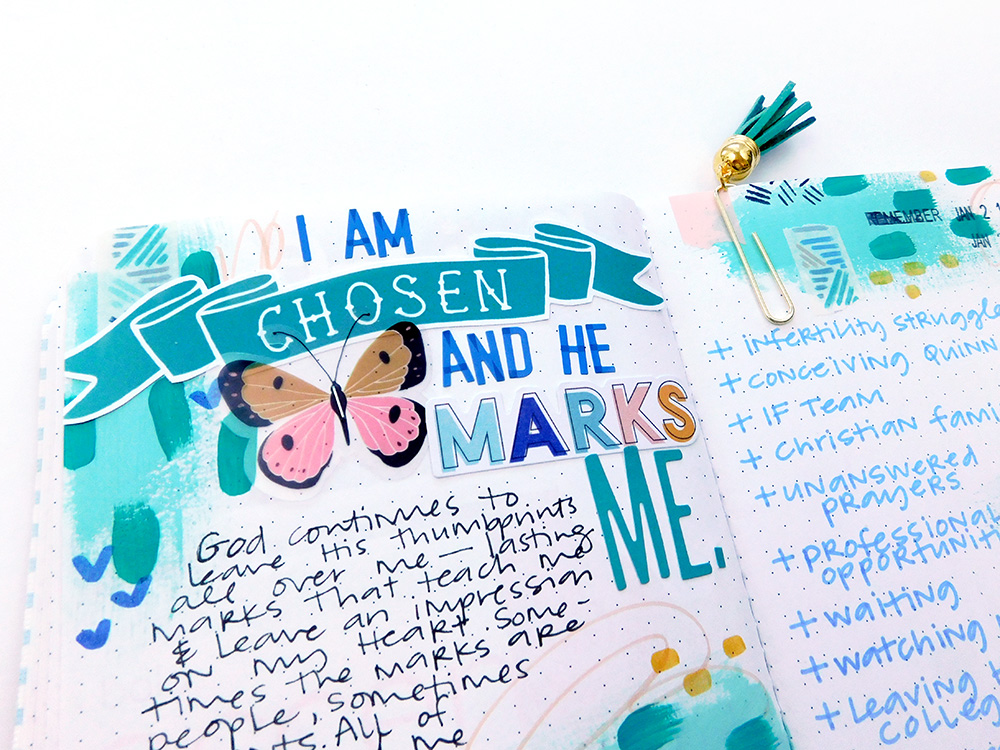 I AM
CHOSEN
AND HE
MARKS
ME.
God continues to
leave His thumbprints
all over me — lasting
marks that teach me
& leave an impression
on my heart. Some-
times the marks are
people, sometimes
All of
me
REMEMBER JAN 2
JAN
+ infertility struggle
+ conceiving Quinn
+ IF Team
+ Christian
+ unanswered
prayers
+ professional
+ waiting
+ watching
+ leaving